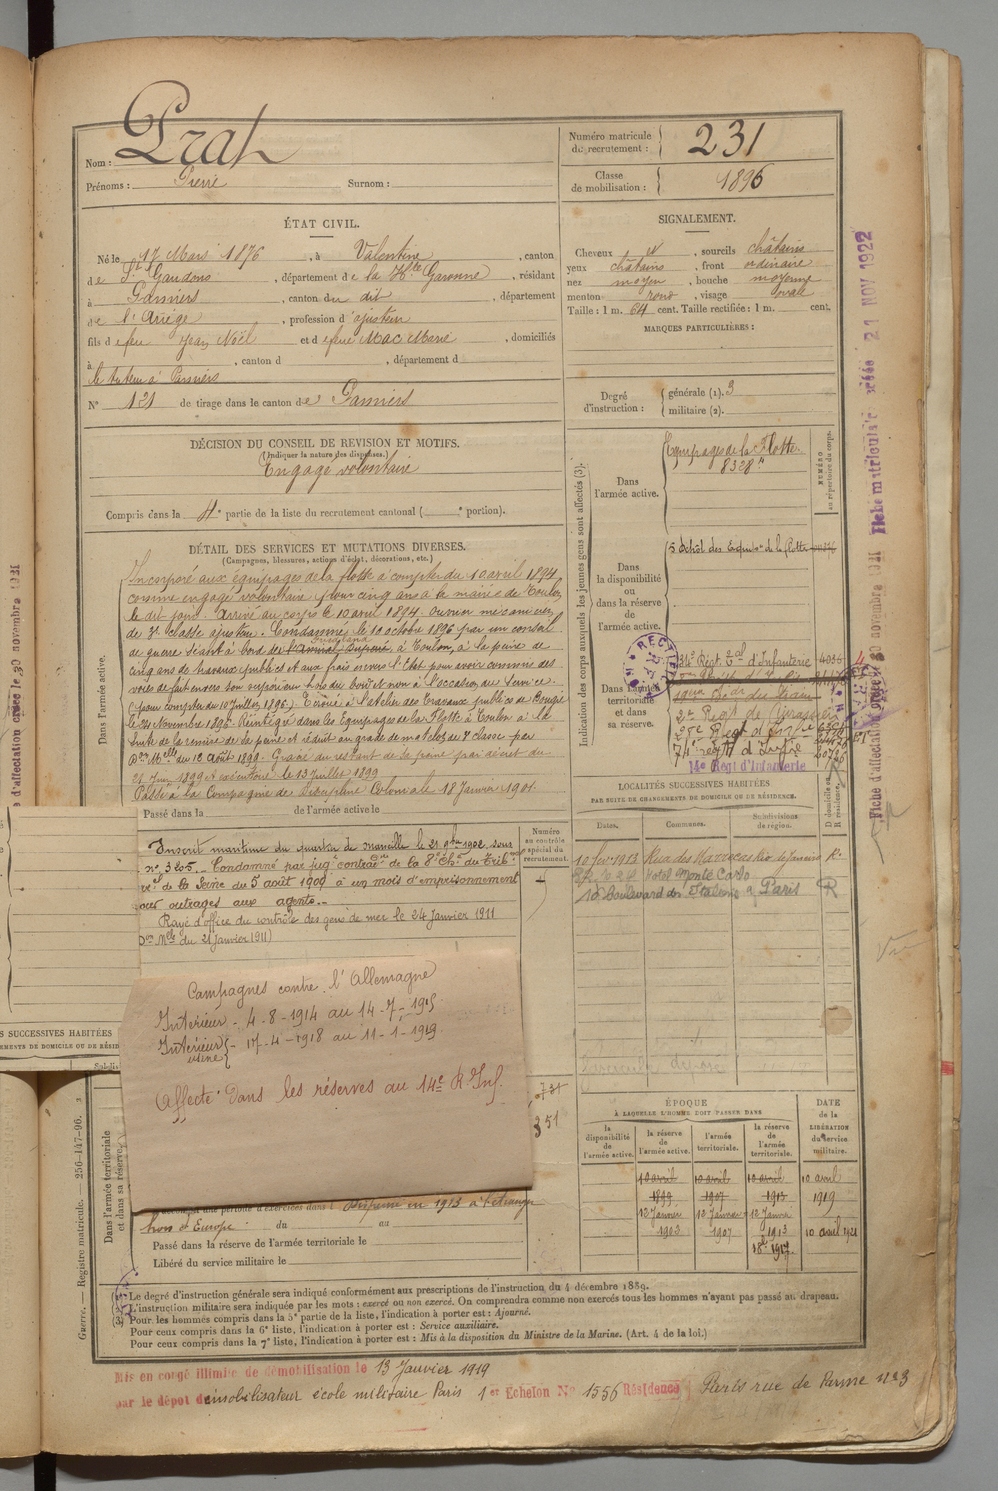 Nom : Prat
Prénoms : Pierre Surnom :
Numéro matricule du recrutement : 231
Classe de mobilisation : 1896
ÉTAT CIVIL.
Né le 17 Mars 1876, à Valentine, canton
de St Gaudens, département de la Hte Garonne, résidant
à Pamiers, canton du dit, département
de l'Ariège, profession d'ajusteur
fils de feu Jean Noël et de feue Mac Marie, domiciliés
à , canton d , département d
le tuteur à Pamiers
N° 121 de tirage dans le canton de Pamiers
SIGNALEMENT.
Cheveux et, sourcils châtains
yeux châtains, front ordinaire
nez moyen, bouche moyenne
menton rond, visage ovale
Taille : 1 m. 64 cent. Taille rectifiée : 1 m. cent.
MARQUES PARTICULIÈRES :
Degré d'instruction : générale (1). 3
militaire (2).
DÉCISION DU CONSEIL DE REVISION ET MOTIFS.
(Indiquer la nature des dispenses.)
Engagé volontaire
Compris dans la 4e partie de la liste du recrutement cantonal ( e portion).
DÉTAIL DES SERVICES ET MUTATIONS DIVERSES.
(Campagnes, blessures, actions d'éclat, décorations, etc.)
Dans l'armée active.
Incorporé aux équipages de la flotte à compter du 10 avril 1894
comme engagé volontaire pour cinq ans à la mairie de Toulon
le dit jour. Arrivé au corps le 10 avril 1894. Ouvrier mécanicien
de 3e classe ajusteur. Condamné le 10 octobre 1896 par un conseil
de guerre séant à bord de l'Amiral Duperré, à Toulon, à la peine de
cinq ans de travaux publics et aux frais envers l'État pour avoir commis des
voies de fait envers son supérieur hors du bord et non à l'occasion du service.
(pour compter du 10 Juillet 1896). Écroué à l'atelier des travaux publics de Bougie
le 24 Novembre 1896. Réintégré dans les Équipages de la Flotte à Toulon à la
suite de la remise de la peine et réduit au grade de matelot de 3e classe par
Don Mlle du 12 août 1899. Gracié du restant de sa peine par décret du
21 Juin 1899 et exécutoire le 13 Juillet 1899
Passé à la Compagnie de Discipline Coloniale 18 Janvier 1901.
Passé dans la de l'armée active le
Inscrit maritime du quartier de Marseille le 21 9bre 1902 sous
n° 325. Condamné par jugt contrad. de la 8e Ch. du Trib.
de la Seine du 5 août 1909 à un mois d'emprisonnement
pour outrages aux agents.
Rayé d'office du contrôle des gens de mer le 24 Janvier 1911
Don Mlle du 21 Janvier 1911)
Numéro au contrôle spécial du recrutement.
Campagnes contre l'Allemagne
Intérieur - 4-8-1914 au 14-7-1915
Intérieur usine - 17-4-1918 au 11-1-1919.
Affecté dans les réserves au 14e R. Inf.
351
Dispensé en 1913 à l'étranger
hors d'Europe du au
Passé dans la réserve de l'armée territoriale le
Libéré du service militaire le
Dans l'armée territoriale et dans sa réserve.
Indication des corps auxquels les jeunes gens sont affectés (3).
NUMÉRO au répertoire du corps.
Dans l'armée active.
Équipages de la Flotte
8328
Dans la disponibilité ou dans la réserve de l'armée active.
5 Dépôt des Équip. de la Flotte
Dans l'armée territoriale et dans sa réserve.
134e Régt Tal d'Infanterie
19e Eon du Train
71e régt d'Infie
14e Régt d'Infanterie
LOCALITÉS SUCCESSIVES HABITÉES
PAR SUITE DE CHANGEMENTS DE DOMICILE OU DE RÉSIDENCE.
Dates. Communes. Subdivisions de région. D domicile ou R résidence.
10 fév 1913 Rua das Marrecas Rio de Janeiro R.
Hotel Monte Carlo
10 boulevard des Italiens à Paris R
ÉPOQUE
À LAQUELLE L'HOMME DOIT PASSER DANS
la disponibilité de l'armée active.
la réserve de l'armée active.
l'armée territoriale.
la réserve de l'armée territoriale.
DATE de la LIBÉRATION du service militaire.
10 avril 10 avril 10 avril 10 avril
1899 1907 1913 1919
12 Janvier 12 Janvier 12 Janvier
1903 1907 1913 10 avril 1921
18 bre 1917.
Le degré d'instruction générale sera indiqué conformément aux prescriptions de l'instruction du 4 décembre 1889.
L'instruction militaire sera indiquée par les mots : exercé ou non exercé. On comprendra comme non exercés tous les hommes n'ayant pas passé au drapeau.
Pour les hommes compris dans la 5e partie de la liste, l'indication à porter est : Ajourné.
Pour ceux compris dans la 6e liste, l'indication à porter est : Service auxiliaire.
Pour ceux compris dans la 7e liste, l'indication à porter est : Mis à la disposition du Ministre de la Marine. (Art. 4 de la loi.)
Mis en congé illimité de démobilisation le 13 Janvier 1919
par le dépôt démobilisateur école militaire Paris 1er Echelon No 1556 Résidence Paris rue de Parme n° 3
Guerre. — Registre matricule. — 256-147-96.
Fiche matricule créée 21 NOV 1922
Fiche d'affectation créée le 30 novembre 1931
S SUCCESSIVES HABITÉES